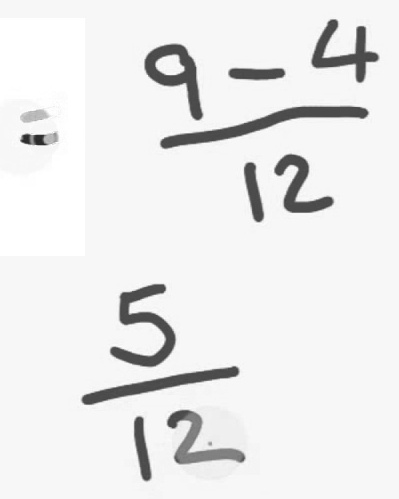 = 9 - 4
12
5
12